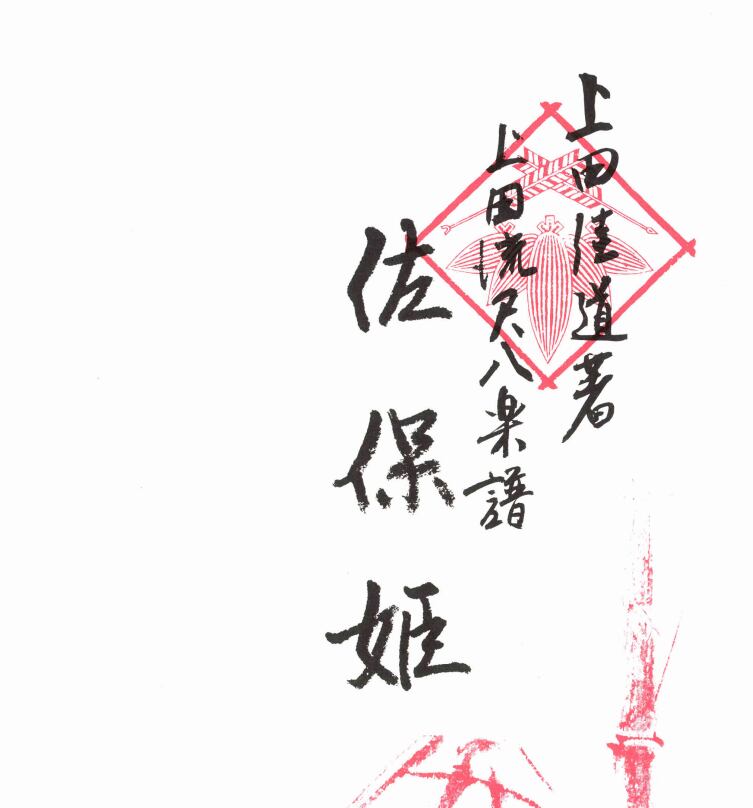 上田佳道著
上田流尺八楽譜
佐保姫